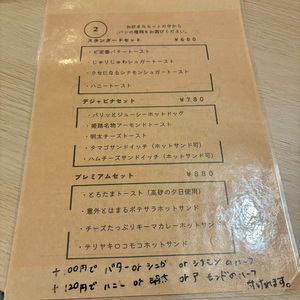 2
お好きなセットの中から
パンの種類をお選びください。
スタンダードセット ¥680
・ど定番バタートースト
・じゅりじゅわシュガートースト
・クセになるシナモンシュガートースト
・ハニートースト
デジャビナセット ¥780
・パリッとジューシーホットドッグ
・姫路名物アーモンドトースト
・明太チーズトースト
・タマゴサンドイッチ(ホットサンド可)
・ハムチーズサンドイッチ(ホットサンド可)
プレミアムセット ¥880
・とろたまトースト(高砂の夕日使用)
・意外とはまるポテサラホットサンド
・チーズたっぷりキーマカレーホットサンド
・テリヤキロコモコホットサンド
+100円で バター or シュガー or シナモンのハーフ
+120円で ハニー or 明太 or アーモンドのハーフ
付けれます。